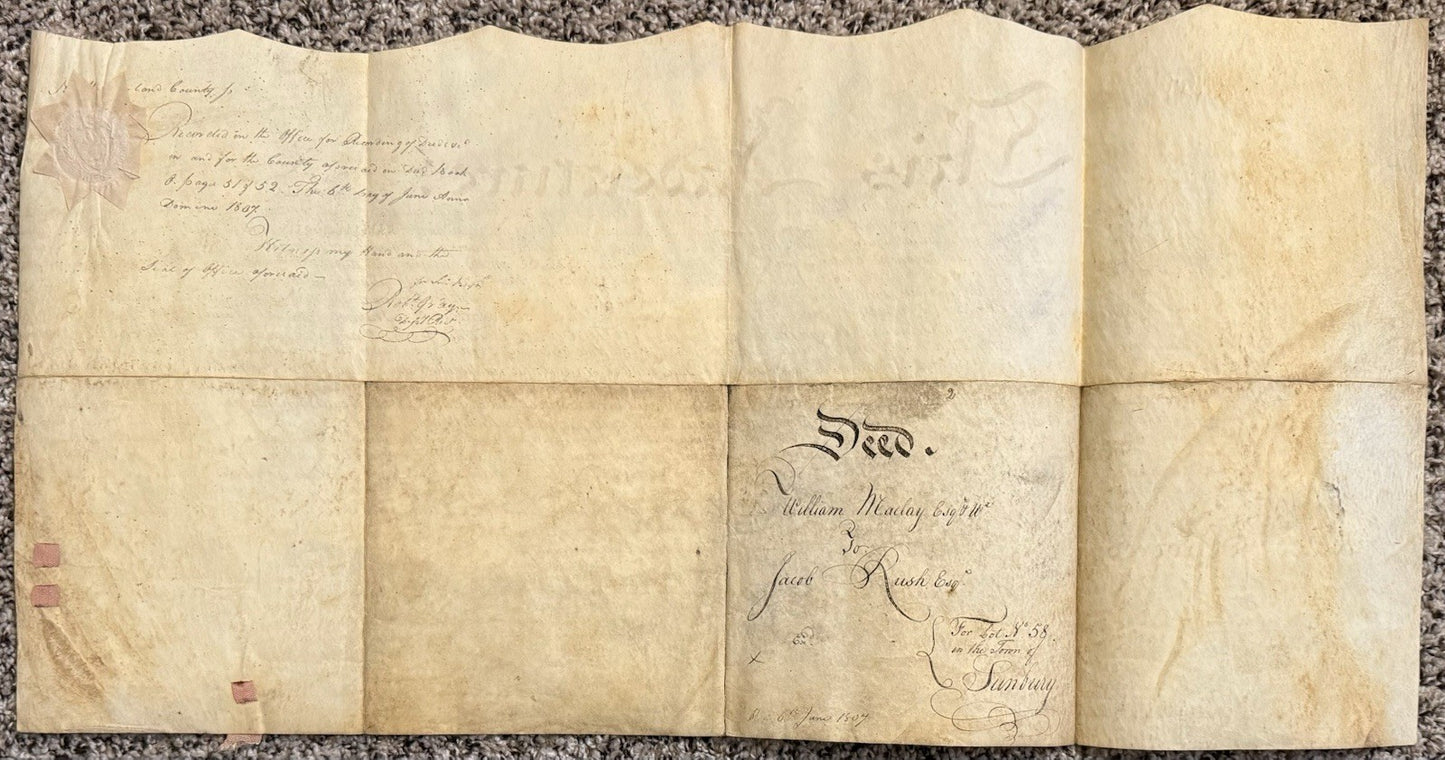 County Ss
Recorded in the Office for Recording of Deeds &c
in and for the County aforesaid in Deed Book
page 51 & 52. The 6th day of June Anno
Domini 1807.
Witness my Hand and the
Seal of Office aforesaid
Robt Gray
This Indenture
2
Deed.
William Maclay Esqr & Wе
To
Jacob Rush Esqr
For Lot No. 58.
in the Town of
Sunbury
Exd
x
6th June 1807